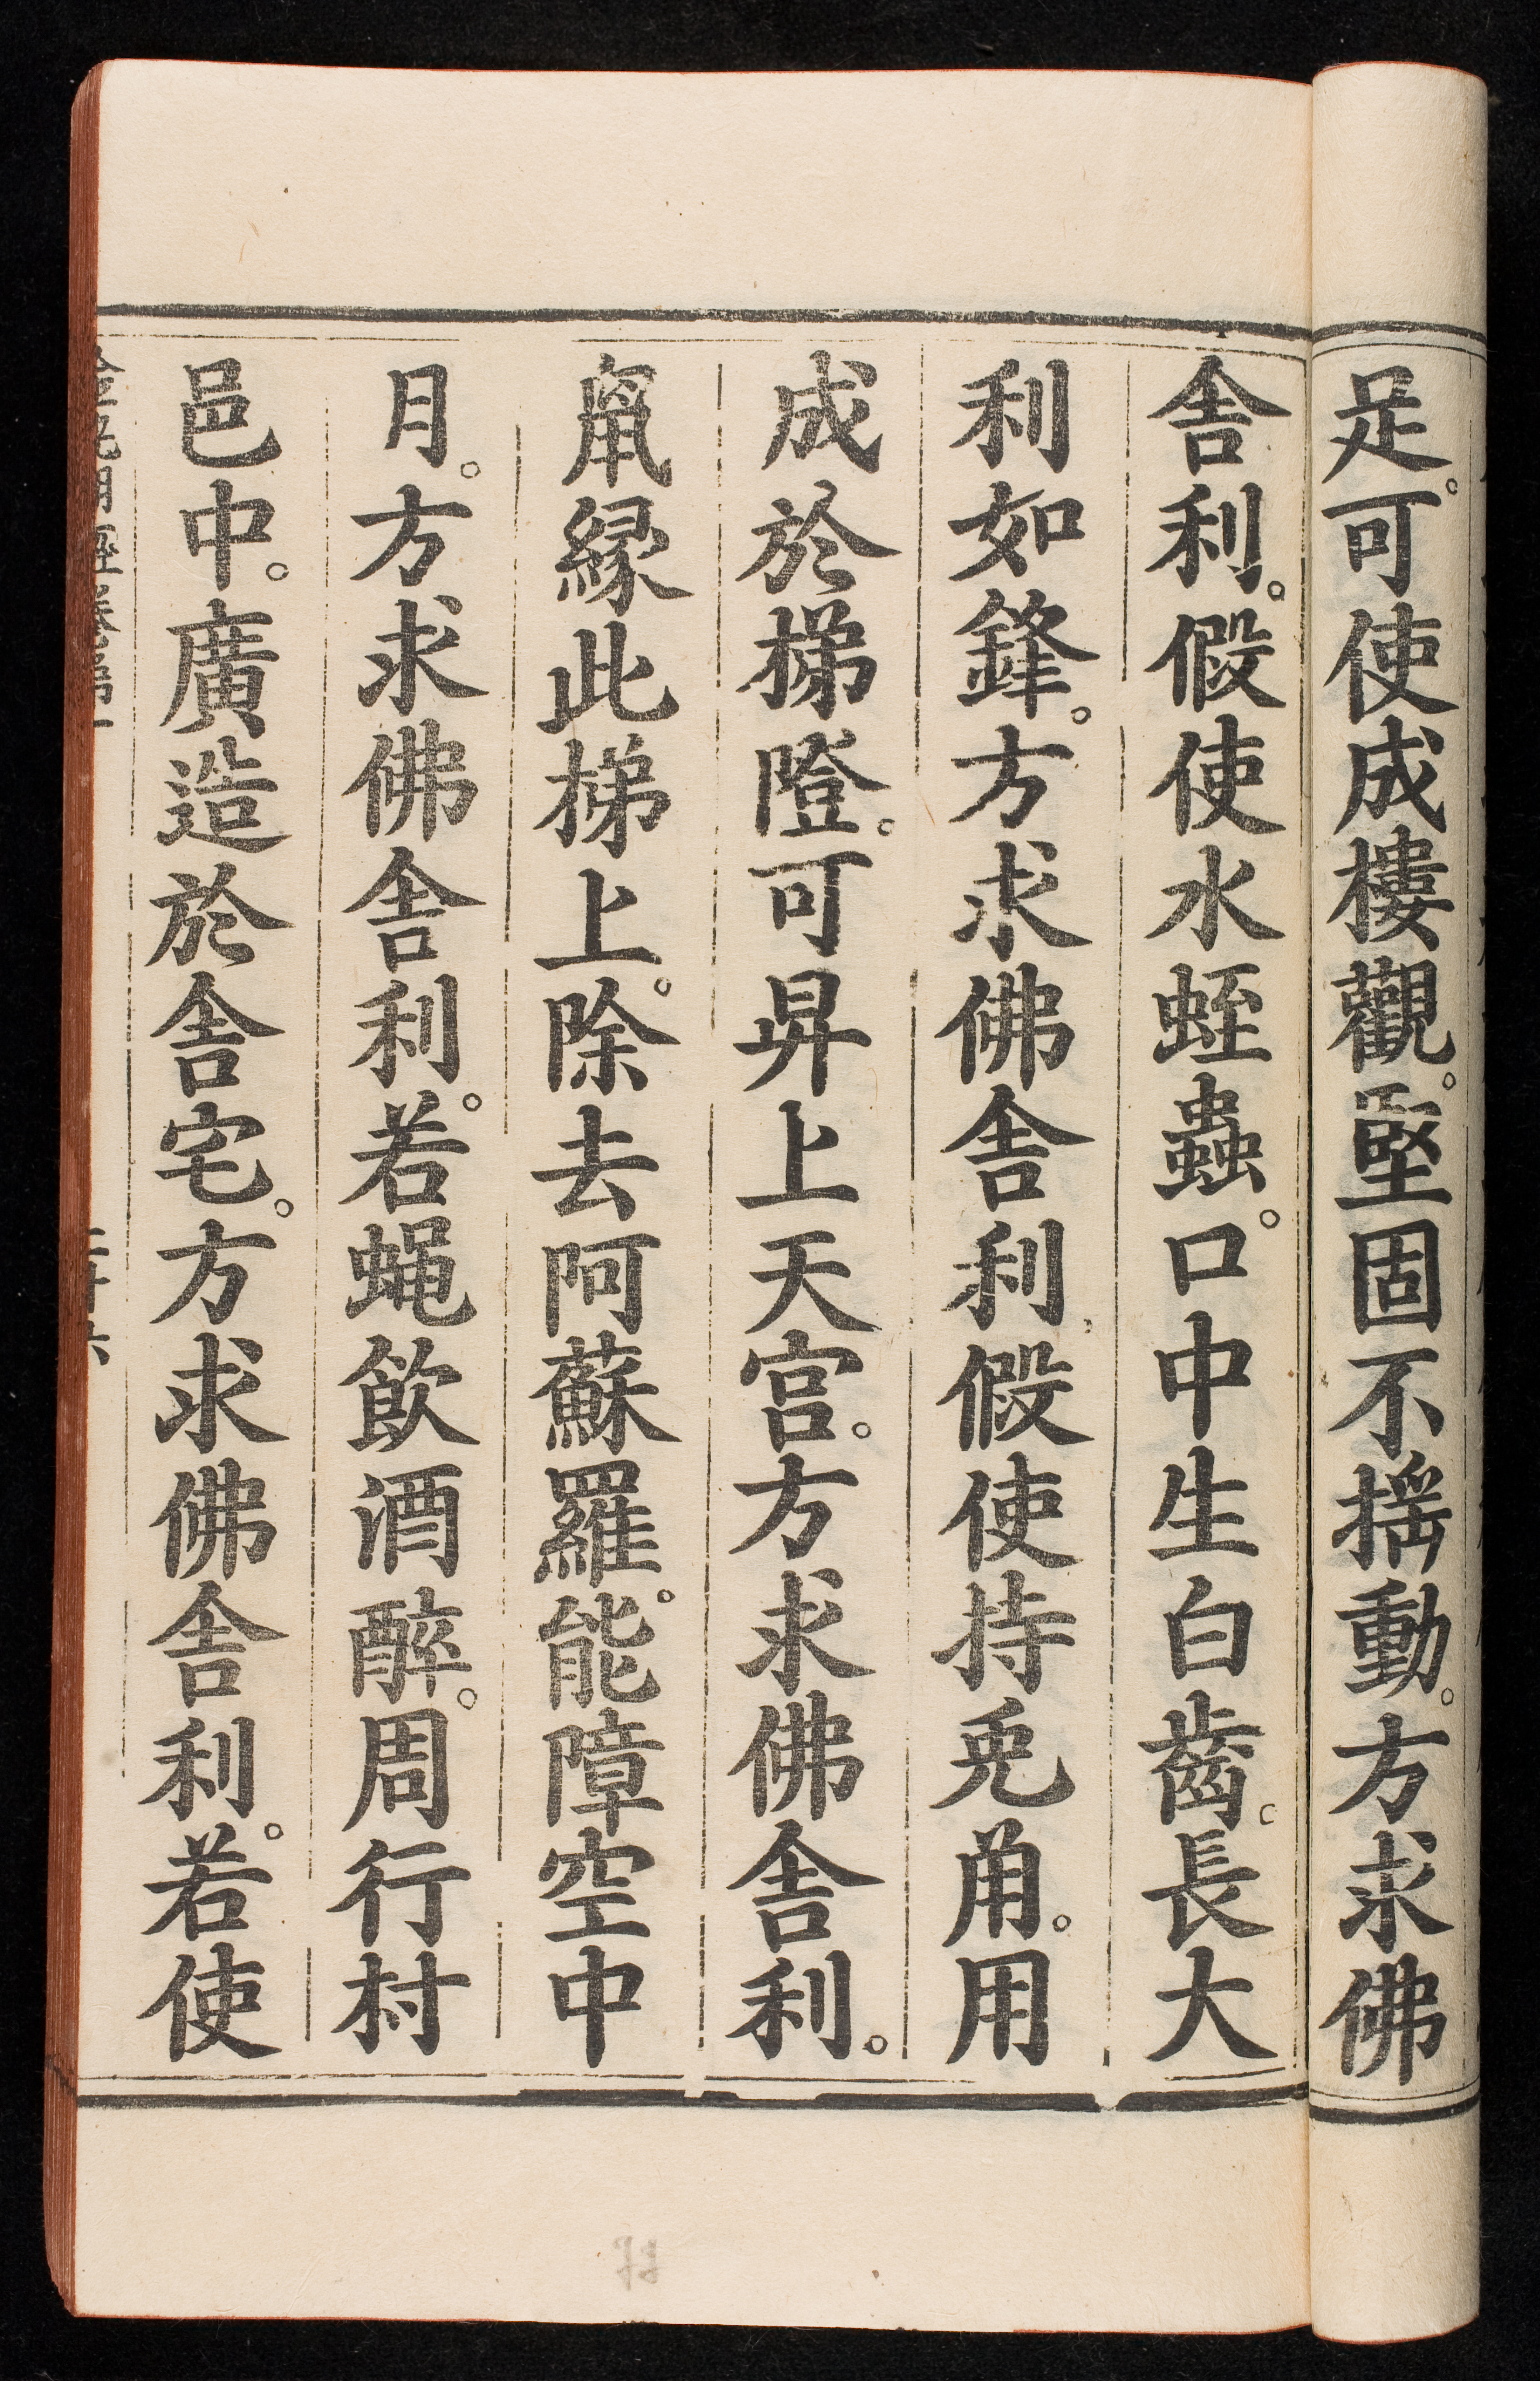 足。可使成樓觀。堅固不揺動。方求佛
舍利。假使水蛭蟲。口中生白齒。長大
利如鋒。方求佛舍利假使持兎角。用
成於梯隥。可昇上天宫。方求佛舍利。
䑕縁此梯上。除去阿蘇羅。能障空中
月。方求佛舍利。若蝇飲酒醉。周行村
邑中。廣造於舍宅。方求佛舍利。若使